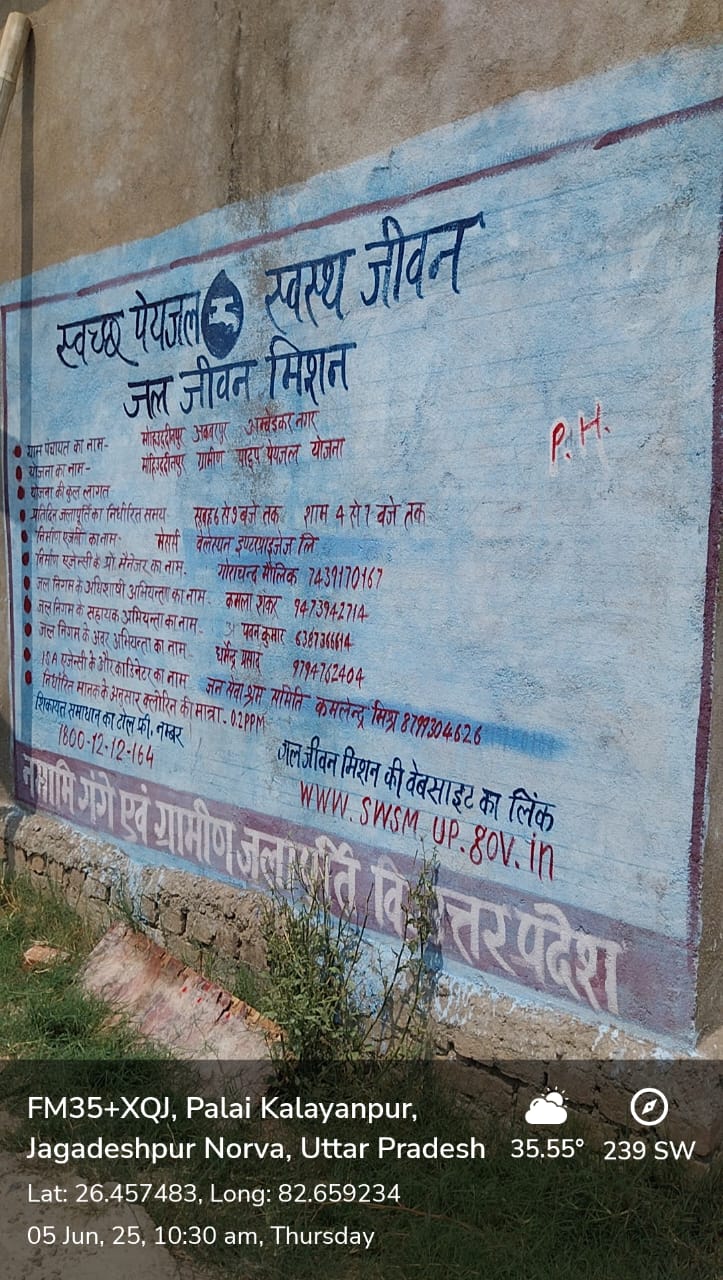 स्वच्छ पेयजल स्वस्थ जीवन
जल जीवन मिशन
P.H.
ग्राम पंचायत का नाम- मोहिउद्दीनपुर अकबरपुर अम्बेडकर नगर
योजना का नाम- मोहिउद्दीनपुर ग्रामीण पाइप पेयजल योजना
योजना की कुल लागत
प्रतिदिन जलापूर्ति का निर्धारित समय सुबह 6 से 9 बजे तक शाम 4 से 7 बजे तक
निर्माण एजेंसी का नाम- मेसर्स वेलस्पन इण्टरप्राइजेज लि
निर्माण एजेन्सी के प्रो. मैनेजर का नाम- गोराचन्द मौलिक 7439170167
जल निगम के अधिशाषी अभियन्ता का नाम- कमला शंकर 9473942714
जल निगम के सहायक अभियन्ता का नाम- पवन कुमार 6387366614
जल निगम के अवर अभियन्ता का नाम- धर्मेन्द्र प्रसाद 9794762404
ISA एजेन्सी के और काडिनेटर का नाम जन सेवा श्रम समिति कमलेन्द्र मिश्र 8799304626
निर्धारित मानक के अनुसार क्लोरिन की मात्रा- 0.2PPM
शिकायत समाधान का टोल फ्री. नम्बर
1800-12-12-164
जल जीवन मिशन की वेबसाइट का लिंक
WWW.SWSM.UP.gov.in
नमामि गंगे एवं ग्रामीण जलापूर्ति उत्तर प्रदेश
FM35+XQJ, Palai Kalayanpur,
Jagadeshpur Norva, Uttar Pradesh
35.55°
239 SW
Lat: 26.457483, Long: 82.659234
05 Jun, 25, 10:30 am, Thursday